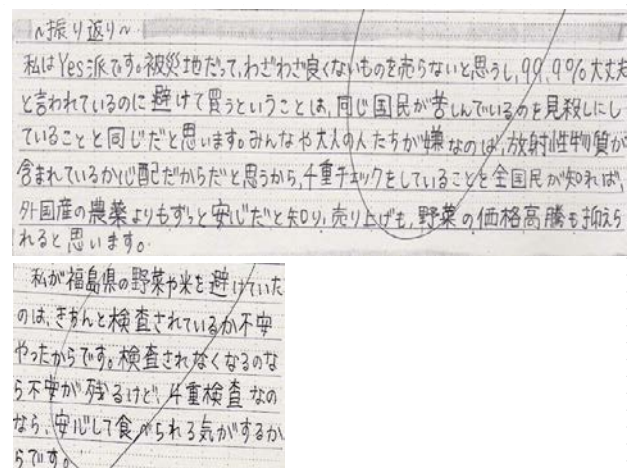 ~振り返り~
私はYes派です。被災地だって、わざわざ良くないものを売らないと思うし、99.9%大丈夫
と言われているのに避けて買うということは、同じ国民が苦しんでいるのを見殺しにし
ていることと同じだと思います。みんなや大人の人たちが嫌なのは、放射性物質が
含まれているか心配だからだと思うから、4重チェックをしていることを全国民が知れば、
外国産の農薬よりもずっと安心だと知り、売り上げも、野菜の価格高騰も抑えら
れると思います。
私が福島県の野菜や米を避けていた
のは、きちんと検査されているか不安
やったからです。検査されなくなるのな
ら不安が残るけど、4重検査なの
なら、安心して食べられる気がするか
らです。